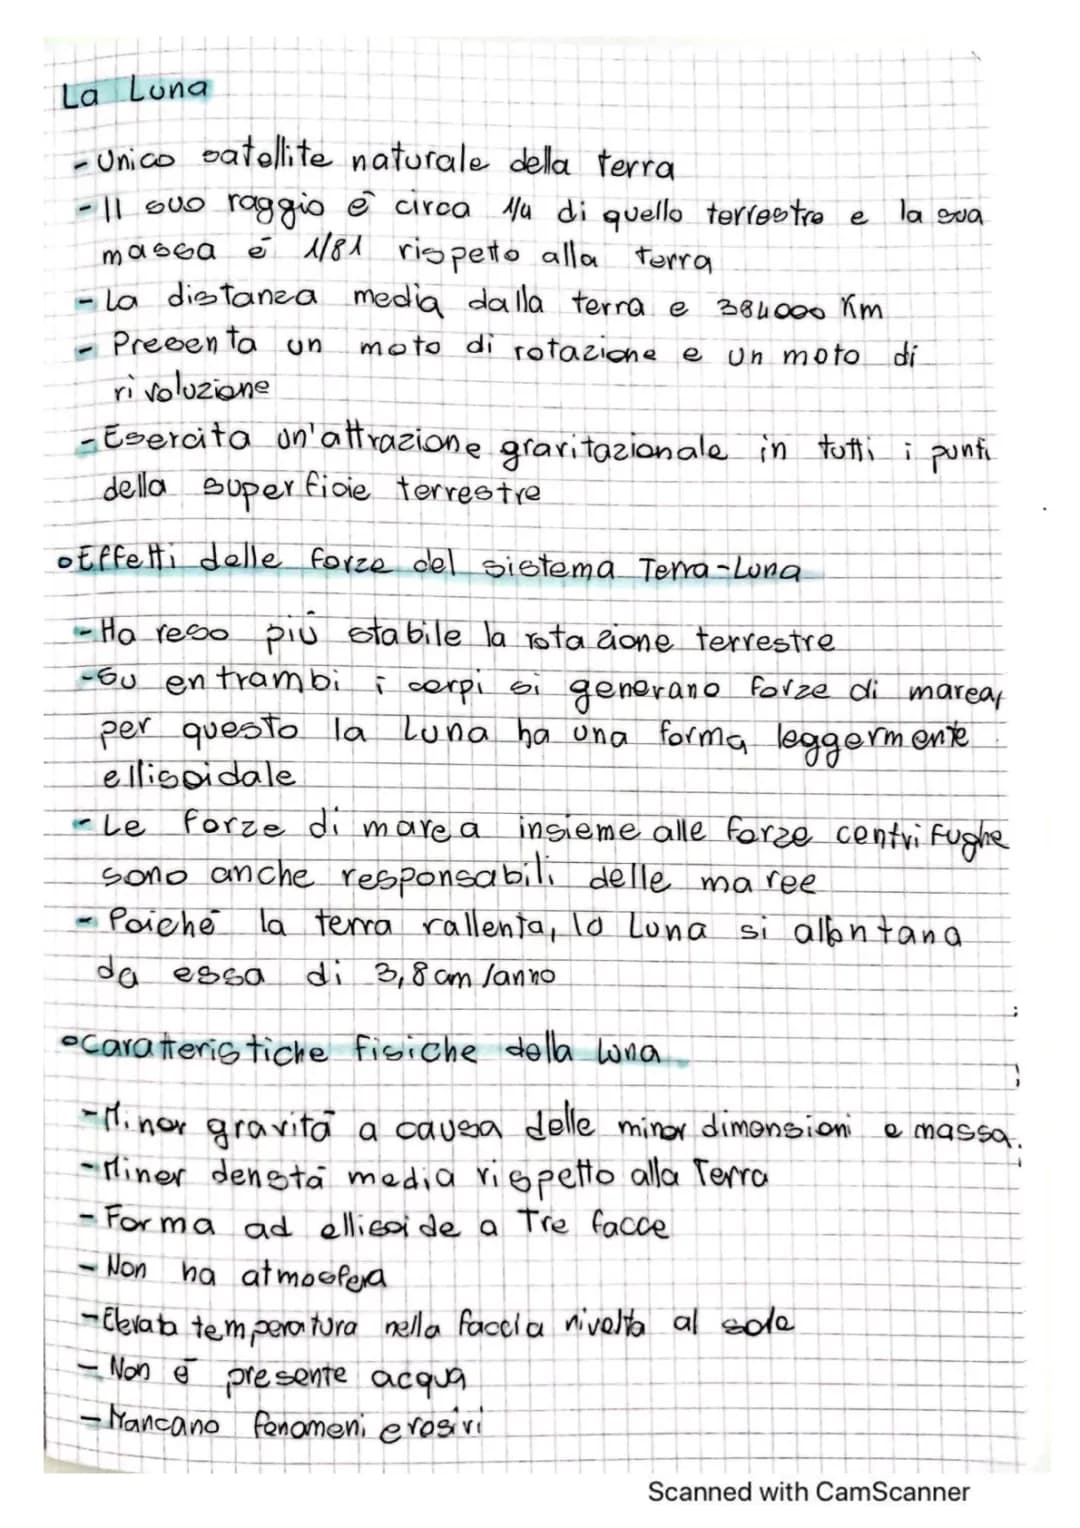 La Luna
- Unico satellite naturale della terra
- Il suo raggio è circa 1/4 di quello terrestre e la sua
massa è 1/81 rispetto alla terra
- La distanza media dalla terra e 384000 Km
- Presenta un moto di rotazione e un moto di
rivoluzione
- Esercita un'attrazione gravitazionale in tutti i punti
della superficie terrestre
• Effetti delle forze del sistema Terra-Luna
- Ha reso più stabile la rotazione terrestre
- Su entrambi i corpi si generano forze di marea,
per questo la Luna ha una forma leggermente
ellissoidale
- Le forze di marea insieme alle forze centrifughe
sono anche responsabili delle maree
- Poiché la terra rallenta, la Luna si allontana
da essa di 3,8 cm/anno
• Caratteristiche fisiche della Luna
- Minor gravità a causa delle minor dimensioni e massa.
- Minor denstà media rispetto alla Terra
- Forma ad ellissoide a Tre facce
- Non ha atmosfera
- Elevata temperatura nella faccia rivolta al sole
- Non è presente acqua
- Mancano fenomeni erosivi
Scanned with CamScanner